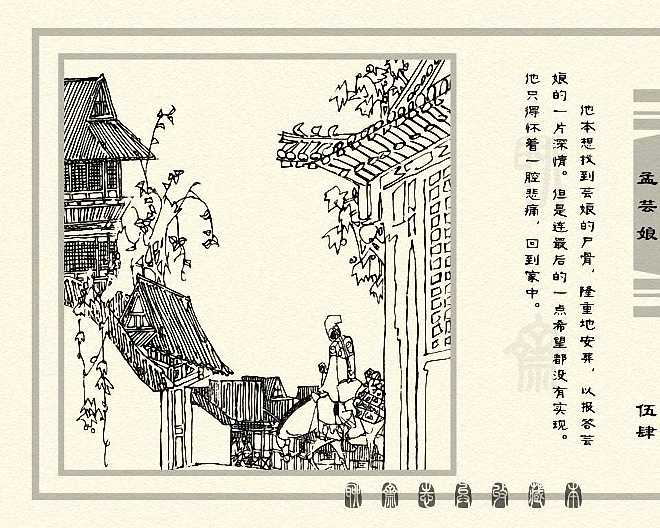 他本想找到芸娘的尸骨，隆重地安葬，以报答芸
娘的一片深情。但是连最后的一点希望都没有实现。
他只得怀着一腔悲痛，回到家中。
孟芸娘
伍肆